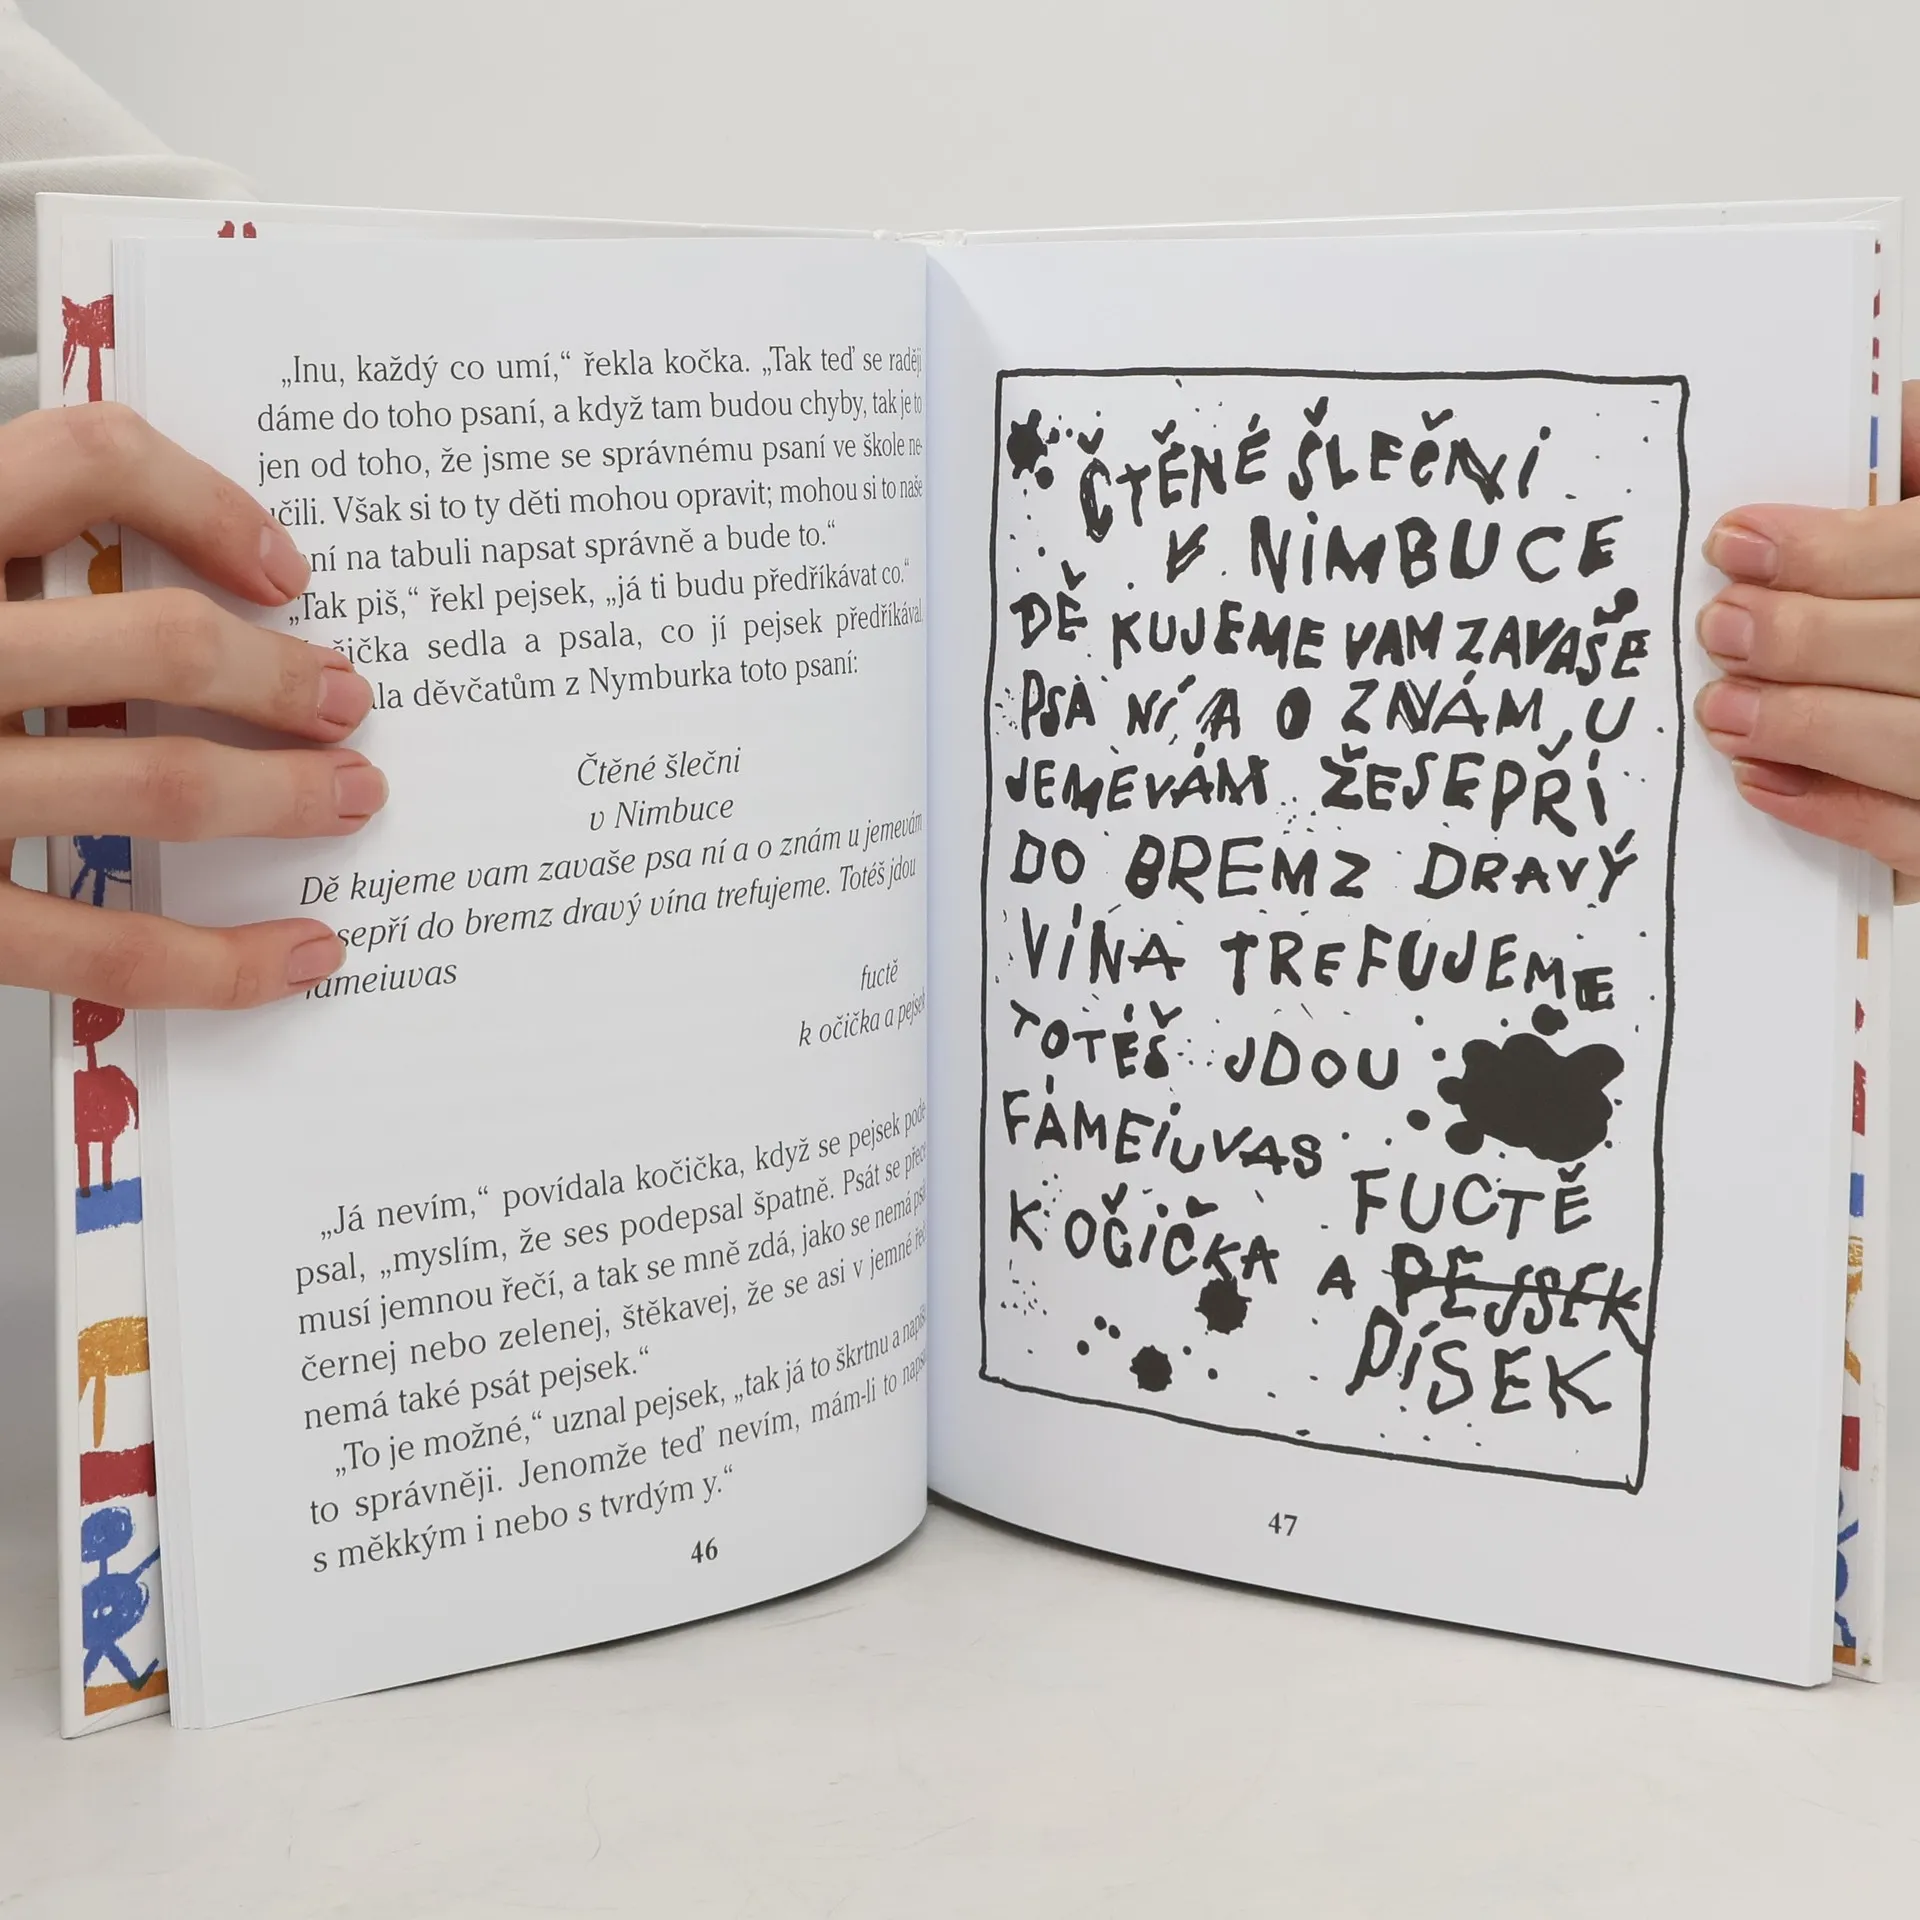 „Inu, každý co umí,“ řekla kočka. „Tak teď se raději
dáme do toho psaní, a když tam budou chyby, tak je to
jen od toho, že jsme se správnému psaní ve škole ne-
učili. Však si to ty děti mohou opravit; mohou si to naše
ní na tabuli napsat správně a bude to.“
„Tak piš,“ řekl pejsek, „já ti budu předříkávat co.“
sedla a psala, co jí pejsek předříkával.
děvčatům z Nymburka toto psaní:
Čtěné šlečni
v Nimbuce
Dě kujeme vam zavaše psa ní a o znám u jemevám
sepří do bremz dravý vína trefujeme. Totéš jdou
fámeiuvas
fuctě
k očička a pejsek
„Já nevím,“ povídala kočička, když se pejsek pode-
psal, „myslím, že ses podepsal špatně. Psát se přece
musí jemnou řečí, a tak se mně zdá, jako se nemá psát
černej nebo zelenej, štěkavej, že se asi v jemné řeči
nemá také psát pejsek.“
„To je možné,“ uznal pejsek, „tak já to škrtnu a napíšu
to správněji. Jenomže teď nevím, mám-li to napsat
s měkkým i nebo s tvrdým y.“
46
ČTĚNÉ ŠLEČNI
V NIMBUCE
DĚ KUJEME VAM ZAVAŠE
PSA NÍ A O ZNÁM U
JEMEVÁM ŽESEPŘÍ
DO BREMZ DRAVÝ
VÍNA TREFUJEME
TOTÉŠ JDOU
FÁMEIUVAS
FUCTĚ
K OČIČKA A PEJSEK
PÍSEK
47